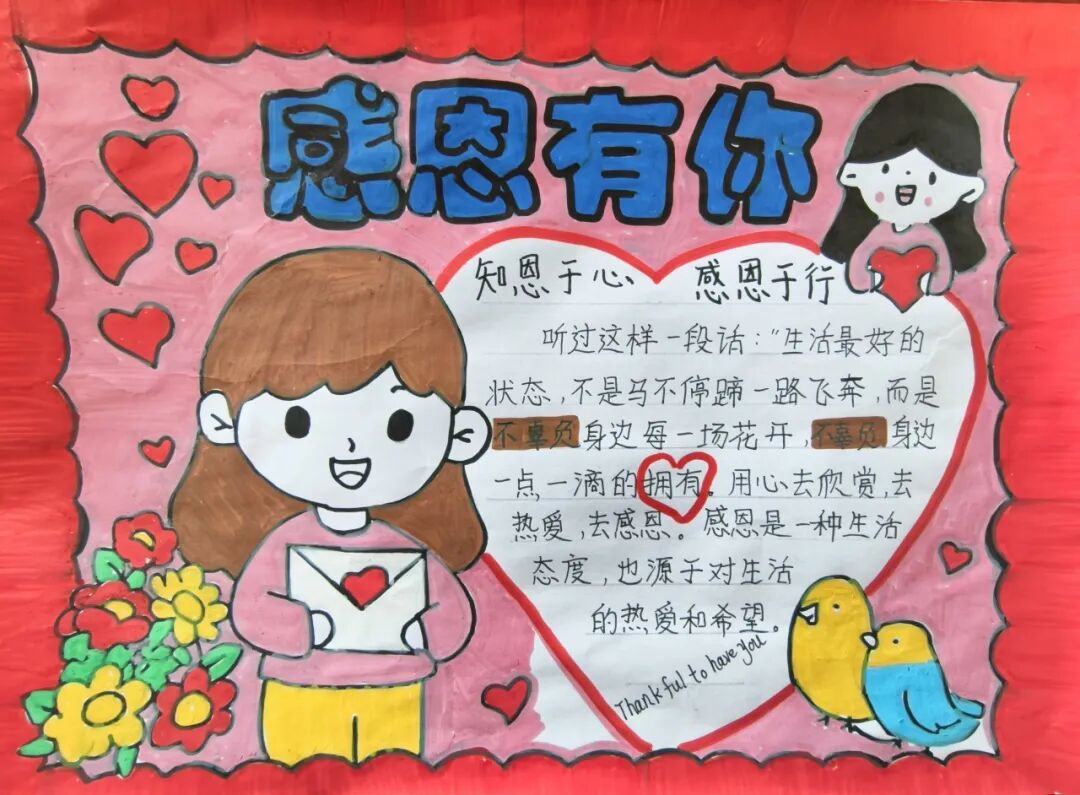 感恩有你
知恩于心 感恩于行
听过这样一段话："生活最好的
状态,不是马不停蹄一路飞奔,而是
不辜负身边每一场花开,不辜负身边
一点一滴的拥有。用心去欣赏,去
热爱,去感恩。感恩是一种生活
态度,也源于对生活
的热爱和希望。
Thankful to have you